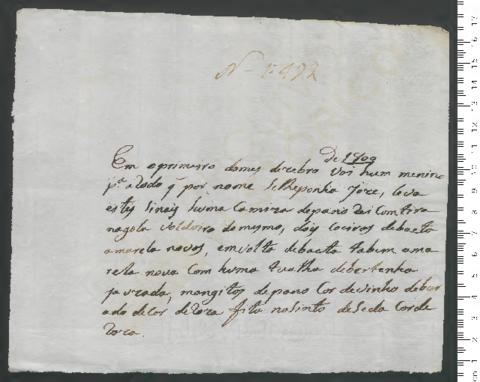 N - 1:492
de 1809
Em o primeiro do mes dezebro Voi hum menino
pª a Roda q por nome Selheponha Joze, leva
estes sinais huma Camiza de pano Rei Com tira
na gola Voldoiro do mesmo, dois Coeiros de baeta
amarela novos, em volto debaeta tabem ama
rela nova Com huma tualha debertanha
, mangitos depano Cor devinho debur
ado de Cor de Roza fita nosinto de Seda Corde
Roza.